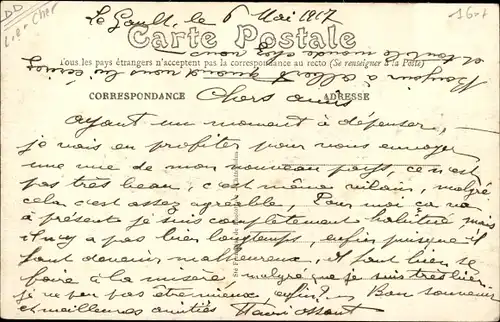 DD
Loir Cher
1607
Le Gault, le 6 Mai 1917
Carte Postale
Bonjour à albert quand vous lui écrirez
et tout le monde chez vous
Tous les pays étrangers n'acceptent pas la correspondance au recto (Se renseigner à la Poste)
CORRESPONDANCE
ADRESSE
Chers amis
ayant un moment à dépenser,
je vais en profiter pour vous envoyer
une vue de mon nouveau pays, ce n'est
pas très beau, c'est même vilain, malgré
cela c'est assez agréable, Pour moi ça va
à présent je suis complètement habitué, mais
il n'y a pas bien longtemps, enfin puisque il
faut devenir malheureux, il faut bien se
faire à la misère, malgré que je suis très bien
je ne peu pas être mieux, enfin? Bon souvenir
et meilleures amitiés Henri